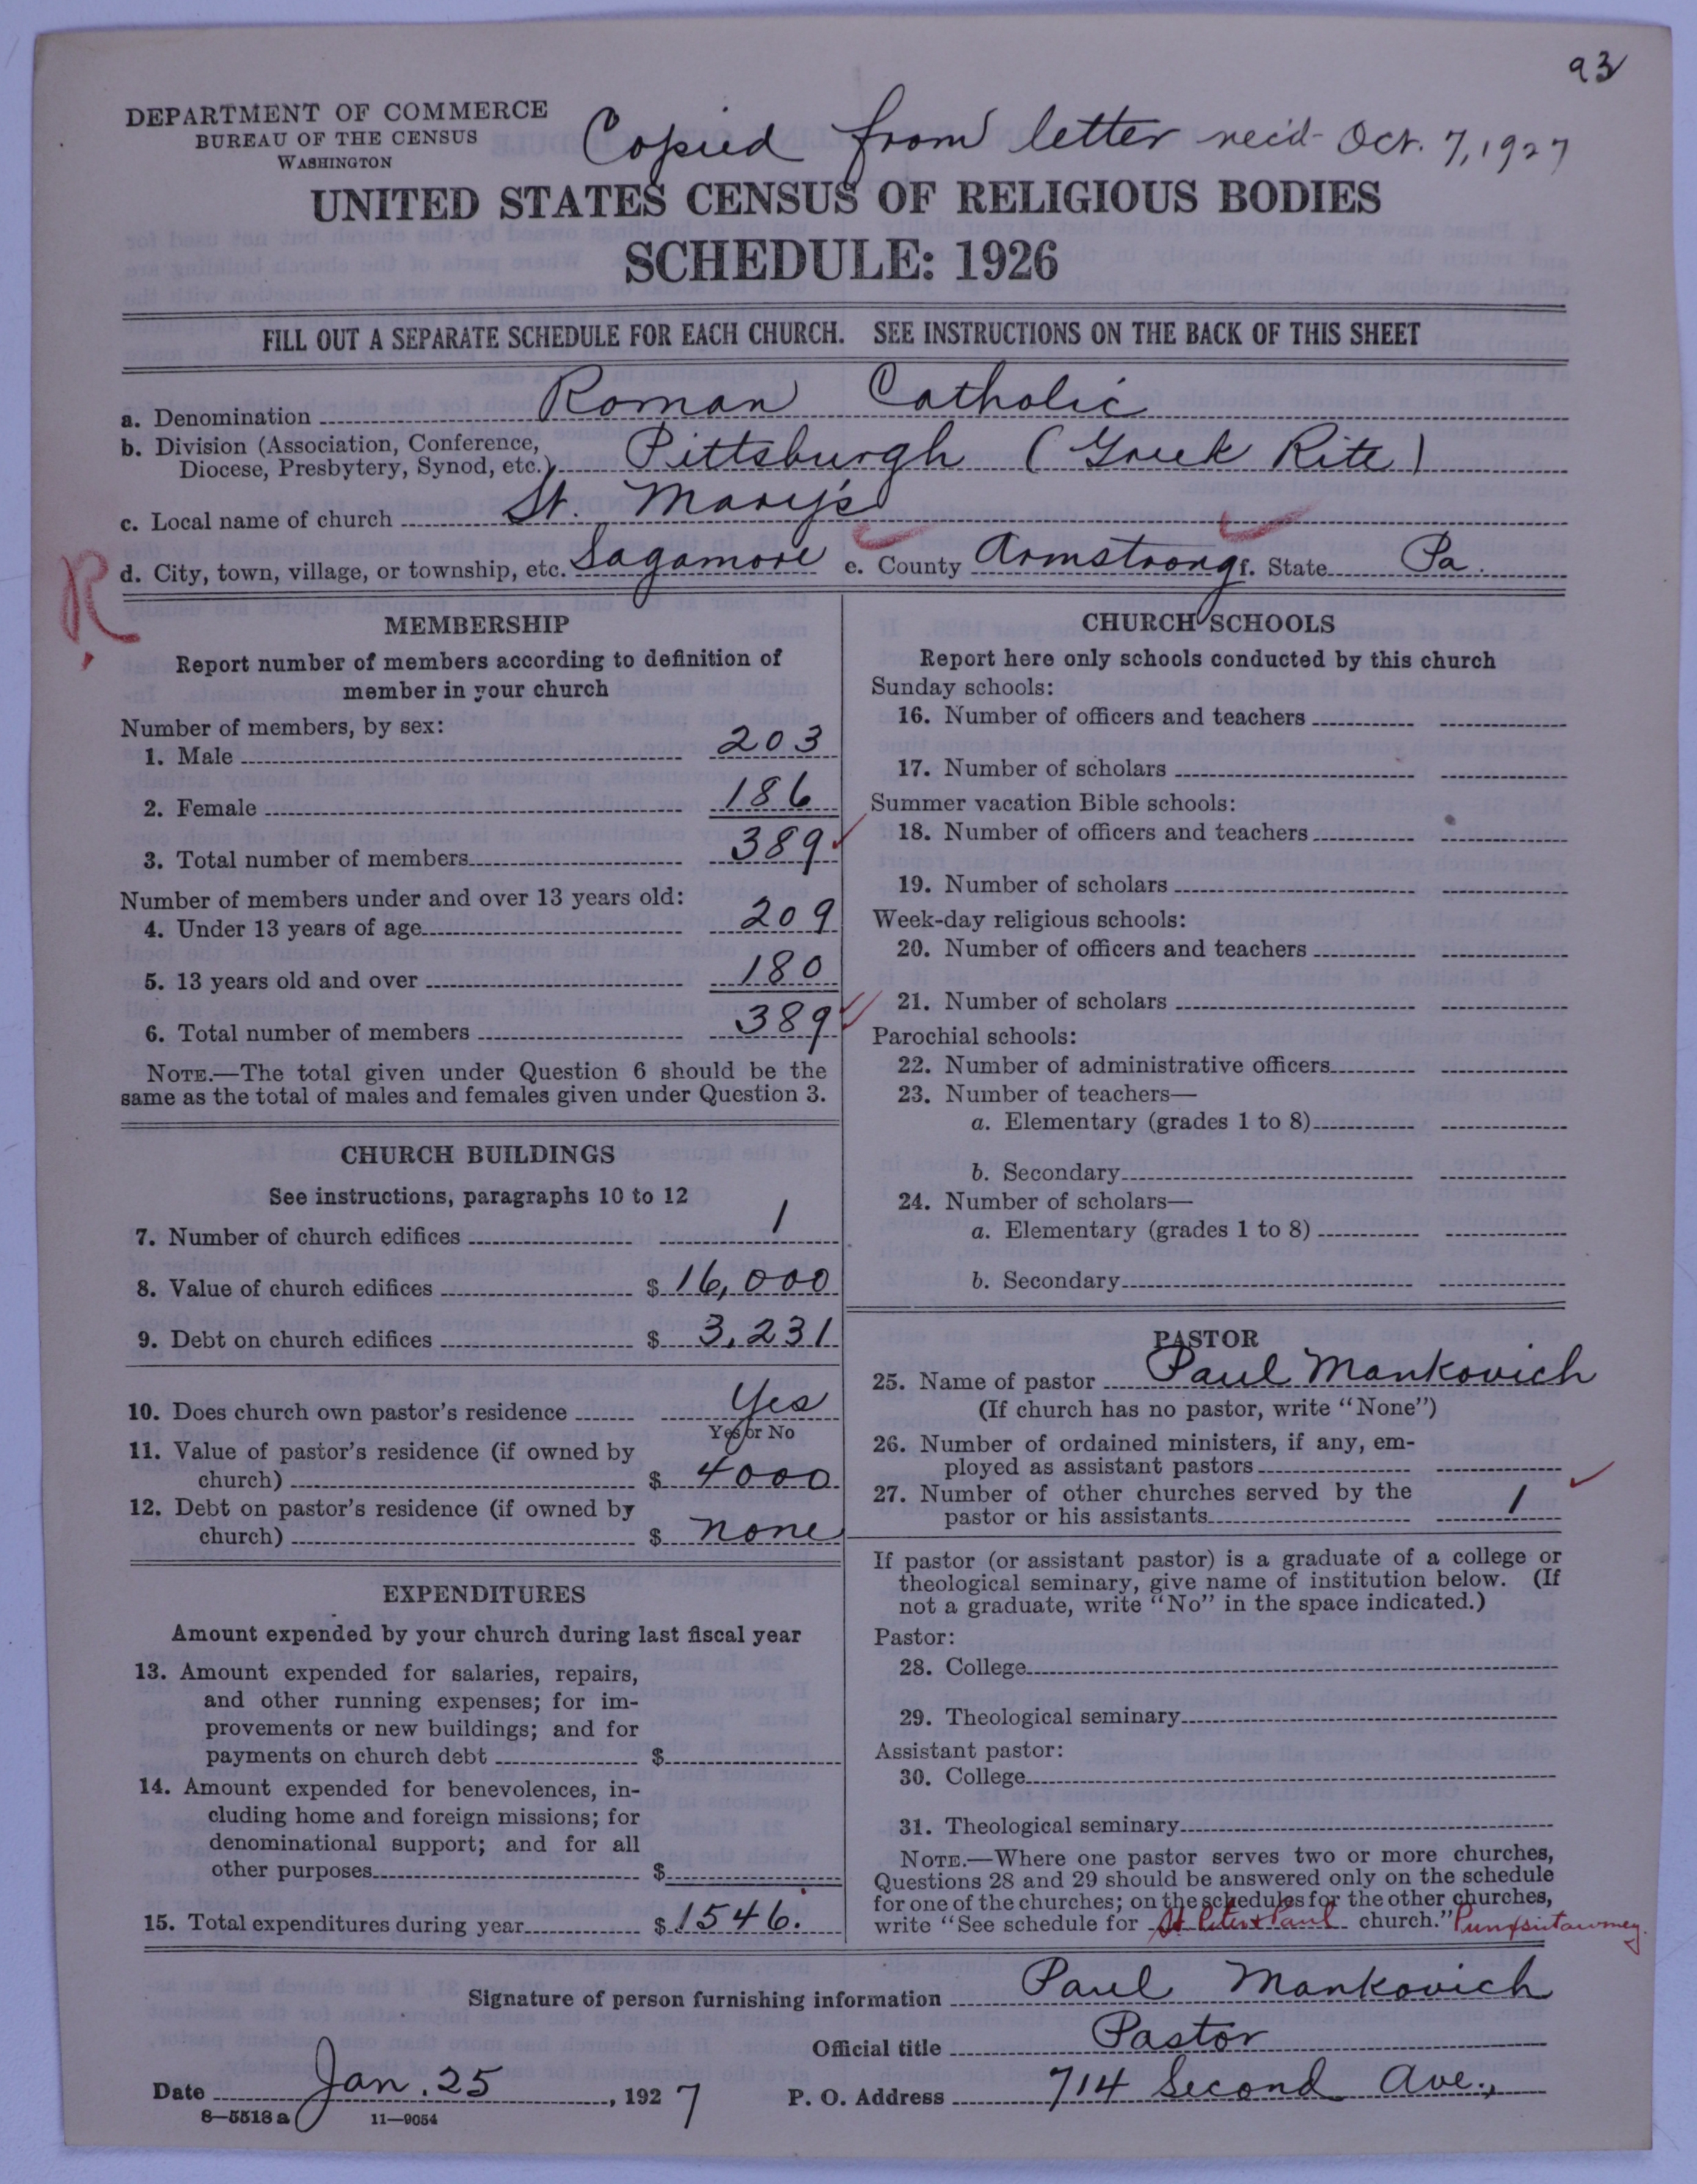 93
DEPARTMENT OF COMMERCE
BUREAU OF THE CENSUS
WASHINGTON
Copied from letter rec'd Oct. 7, 1927
UNITED STATES CENSUS OF RELIGIOUS BODIES
SCHEDULE: 1926
FILL OUT A SEPARATE SCHEDULE FOR EACH CHURCH. SEE INSTRUCTIONS ON THE BACK OF THIS SHEET
a. Denomination Roman Catholic
b. Division (Association, Conference,
Diocese, Presbytery, Synod, etc.) Pittsburgh (Greek Rite)
c. Local name of church St. Mary's
d. City, town, village, or township, etc. Sagamore e. County Armstrong f. State Pa.
R
MEMBERSHIP
Report number of members according to definition of
member in your church
Number of members, by sex:
1. Male 203
2. Female 186
3. Total number of members 389
Number of members under and over 13 years old:
4. Under 13 years of age 209
5. 13 years old and over 180
6. Total number of members 389
NOTE.—The total given under Question 6 should be the
same as the total of males and females given under Question 3.
CHURCH BUILDINGS
See instructions, paragraphs 10 to 12
7. Number of church edifices 1
8. Value of church edifices $ 16,000
9. Debt on church edifices $ 3,231
10. Does church own pastor's residence Yes
Yes or No
11. Value of pastor's residence (if owned by
church) $ 4000
12. Debt on pastor's residence (if owned by
church) $ none
EXPENDITURES
Amount expended by your church during last fiscal year
13. Amount expended for salaries, repairs,
and other running expenses; for im-
provements or new buildings; and for
payments on church debt $
14. Amount expended for benevolences, in-
cluding home and foreign missions; for
denominational support; and for all
other purposes $
15. Total expenditures during year $ 1546.
CHURCH SCHOOLS
Report here only schools conducted by this church
Sunday schools:
16. Number of officers and teachers
17. Number of scholars
Summer vacation Bible schools:
18. Number of officers and teachers
19. Number of scholars
Week-day religious schools:
20. Number of officers and teachers
21. Number of scholars
Parochial schools:
22. Number of administrative officers
23. Number of teachers—
a. Elementary (grades 1 to 8)
b. Secondary
24. Number of scholars—
a. Elementary (grades 1 to 8)
b. Secondary
PASTOR
25. Name of pastor Paul Mankovich
(If church has no pastor, write "None")
26. Number of ordained ministers, if any, em-
ployed as assistant pastors
27. Number of other churches served by the
pastor or his assistants 1
If pastor (or assistant pastor) is a graduate of a college or
theological seminary, give name of institution below. (If
not a graduate, write "No" in the space indicated.)
Pastor:
28. College
29. Theological seminary
Assistant pastor:
30. College
31. Theological seminary
NOTE.—Where one pastor serves two or more churches,
Questions 28 and 29 should be answered only on the schedule
for one of the churches; on the schedules for the other churches,
write "See schedule for St Peter + Paul church." Punxsutawney
Signature of person furnishing information Paul Mankovich
Official title Pastor
Date Jan. 25, 1927 P. O. Address 714 Second Ave.,
8—5518 a 11—9054